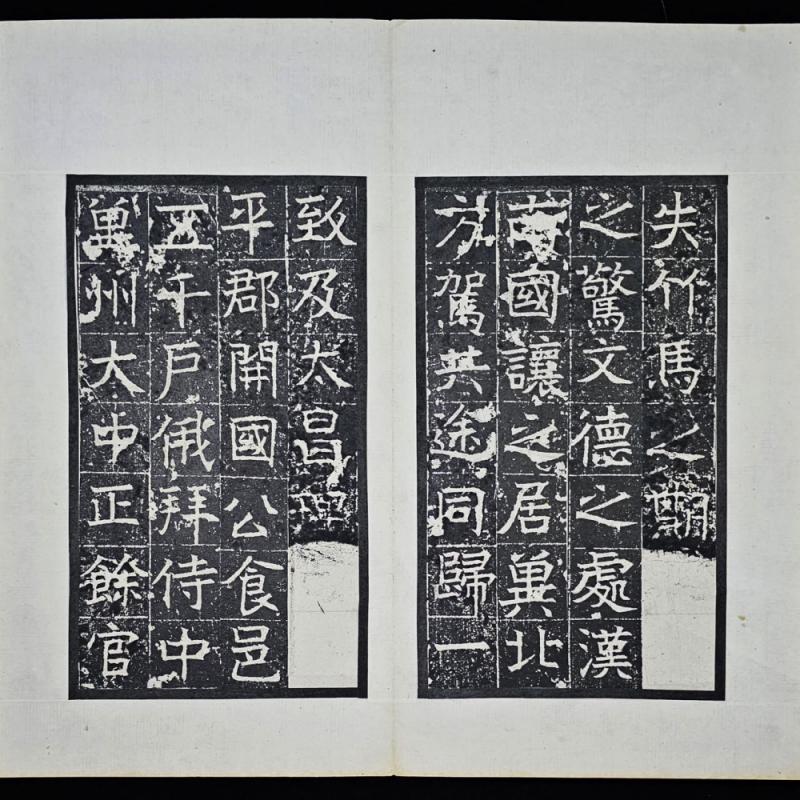 失竹馬之
之驚文德之處漢
國讓之居冀北
方駕共途同歸一
致及太昌
平郡開國公食邑
五千戶俄拜侍中
冀州大中正餘官